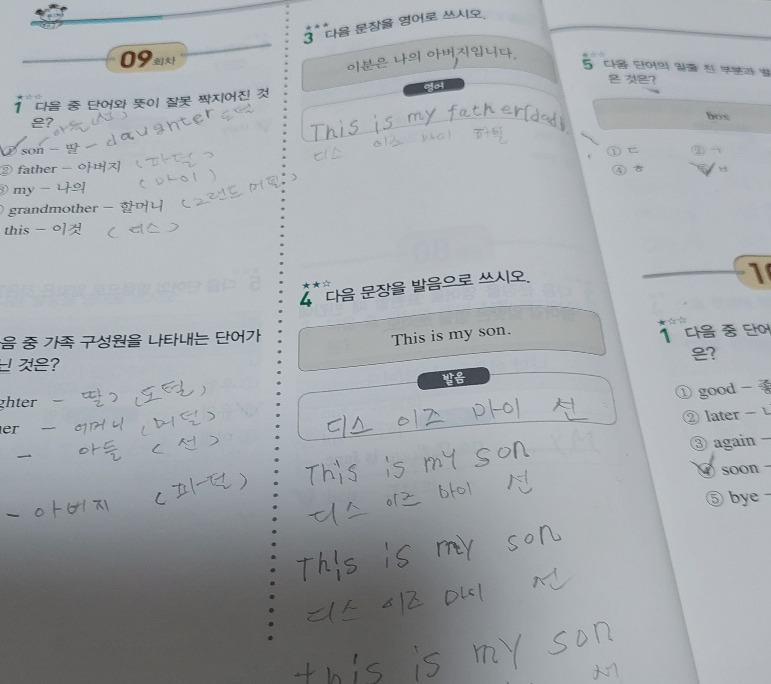 09 회차
1 다음 중 단어와 뜻이 잘못 짝지어진 것
은?
아들 (선)
① son – 딸 – daughter 도털
② father – 아버지 (파덜)
③ my – 나의 (마이)
grandmother – 할머니 (그랜드 머덜)
this – 이것 (디스)
음 중 가족 구성원을 나타내는 단어가
닌 것은?
ghter – 딸 (도털)
er – 어머니 (머덜)
– 아들 (선)
– 아버지 (파덜)
3 다음 문장을 영어로 쓰시오.
이분은 나의 아버지입니다.
영어
This is my father(dad).
디스 이즈 마이 파덜
4 다음 문장을 발음으로 쓰시오.
This is my son.
발음
디스 이즈 마이 선
This is my son
디스 이즈 마이 선
This is my son
디스 이즈 마이 선
this is my son
5 다음 단어의 밑줄 친 부분과 발
은 것은?
① ㄷ ② ㅜ
④ ㅎ ⑤ ㅂ
1 다음 중 단어
은?
① good – 좋
② later – 나
③ again –
④ soon –
⑤ bye –